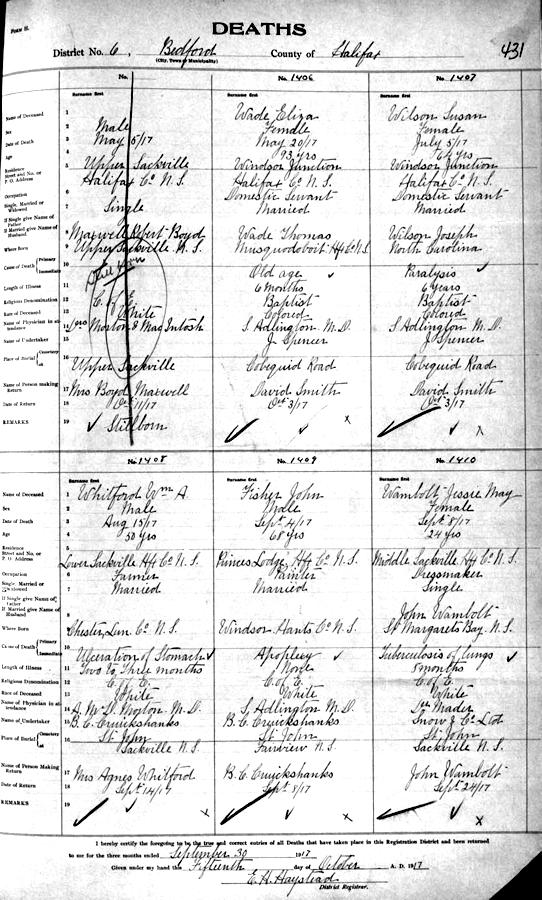 FORM H.
DEATHS
431
District No. 6, Bedford County of Halifax
(City, Town or Municipality)
No. No. 1406 No. 1407
Surname first Surname first Surname first
Name of Deceased 1 Wade Eliza Wilson Susan
Sex 2 Male Female Female
Date of Death 3 May 5/17 May 20/17 July 5/17
Age 4 93 yrs yrs
Residence Street and No. or P. O. Address 5 Upper Sackville Windsor Junction Windsor Junction
6 Halifax Co. N. S. Halifax Co. N. S. Halifax Co. N. S.
Occupation Domestic Servant Domestic Servant
Single, Married or Widowed 7 Single Married Married
If Single give Name of Father
If Married give Name of Husband 8 Maxwell Robert Boyd Wade Thomas Wilson Joseph
Where Born 9 Upper Sackville N. S. Musquodoboit Hfx Co N. S. North Carolina
Cause of Death Primary Immediate 10 Still born Old age ✓ Paralysis ✓
Length of Illness 11 6 months 6 years
Religious Denomination 12 C. of E. Baptist Baptist
Race of Deceased 13 White Colored Coloud
Name of Physician in attendance 14 Drs Morton & MacIntosh S. Adlington M. D. S. Adlington M. D.
Name of Undertaker 15 J. Spencer J. Spencer
Place of Burial Cemetery at 16 Upper Sackville Cobequid Road Cobequid Road
Name of Person making Return 17 Mrs Boyd Maxwell David Smith David Smith
Date of Return 18 Oct 11/17 Oct 3/17 Oct 3/17
REMARKS 19 ✓ Stillborn ✓ ✓ x ✓ ✓ x
No. 1408 No. 1409 No. 1410
Surname first Surname first Surname first
Name of Deceased 1 Whitford Wm A. Fisher John Wambolt Jessie May
Sex 2 Male Male Female
Date of Death 3 Aug 15/17 Sept 4/17 Sept 8/17
Age 4 50 yrs 68 yrs 24 yrs
Residence Street and No. or P. O. Address 5 Lower Sackville Hfx Co N. S. Princes Lodge, Hfx Co N. S. Middle Sackville Hfx Co N. S.
Occupation 6 Farmer Painter Dressmaker
Single, Married or Widowed 7 Married Married Single
If Single give Name of Father
If Married give Name of Husband 8 John Wambolt
Where Born 9 Chester, Lun. Co. N. S. Windsor Hants Co N. S. St Margarets Bay N. S.
Cause of Death Primary Immediate 10 Ulceration of Stomach ✓ Apoplexy ✓ Tuberculosis of lungs ✓
Length of Illness 11 Two to Three months None 5 months
Religious Denomination 12 C. of E. C. of E. C. of E.
Race of Deceased 13 White White White
Name of Physician in attendance 14 A. McD. Morton M. D. S. Adlington M. D. Dr Mader
Name of Undertaker 15 B. C. Cruickshanks B. C. Cruickshanks Snow & Co Ltd
Place of Burial Cemetery at 16 St. John St. John St. John
Sackville N. S. Fairview N. S. Sackville N. S.
Name of Person Making Return 17 Mrs Agnes Whitford B. C. Cruickshanks John Wambolt
Date of Return 18 Sept 14/17 Sept 5/17 Sept 24/17
REMARKS 19 ✓ ✓ x ✓ ✓ x ✓ ✓ x
I hereby certify the foregoing to be the true and correct entries of all Deaths that have taken place in this Registration District and been returned
to me for the three months ended September 30 1917
Given under my hand this Fifteenth day of October A. D. 1917
E. H. Haystead
District Registrar.